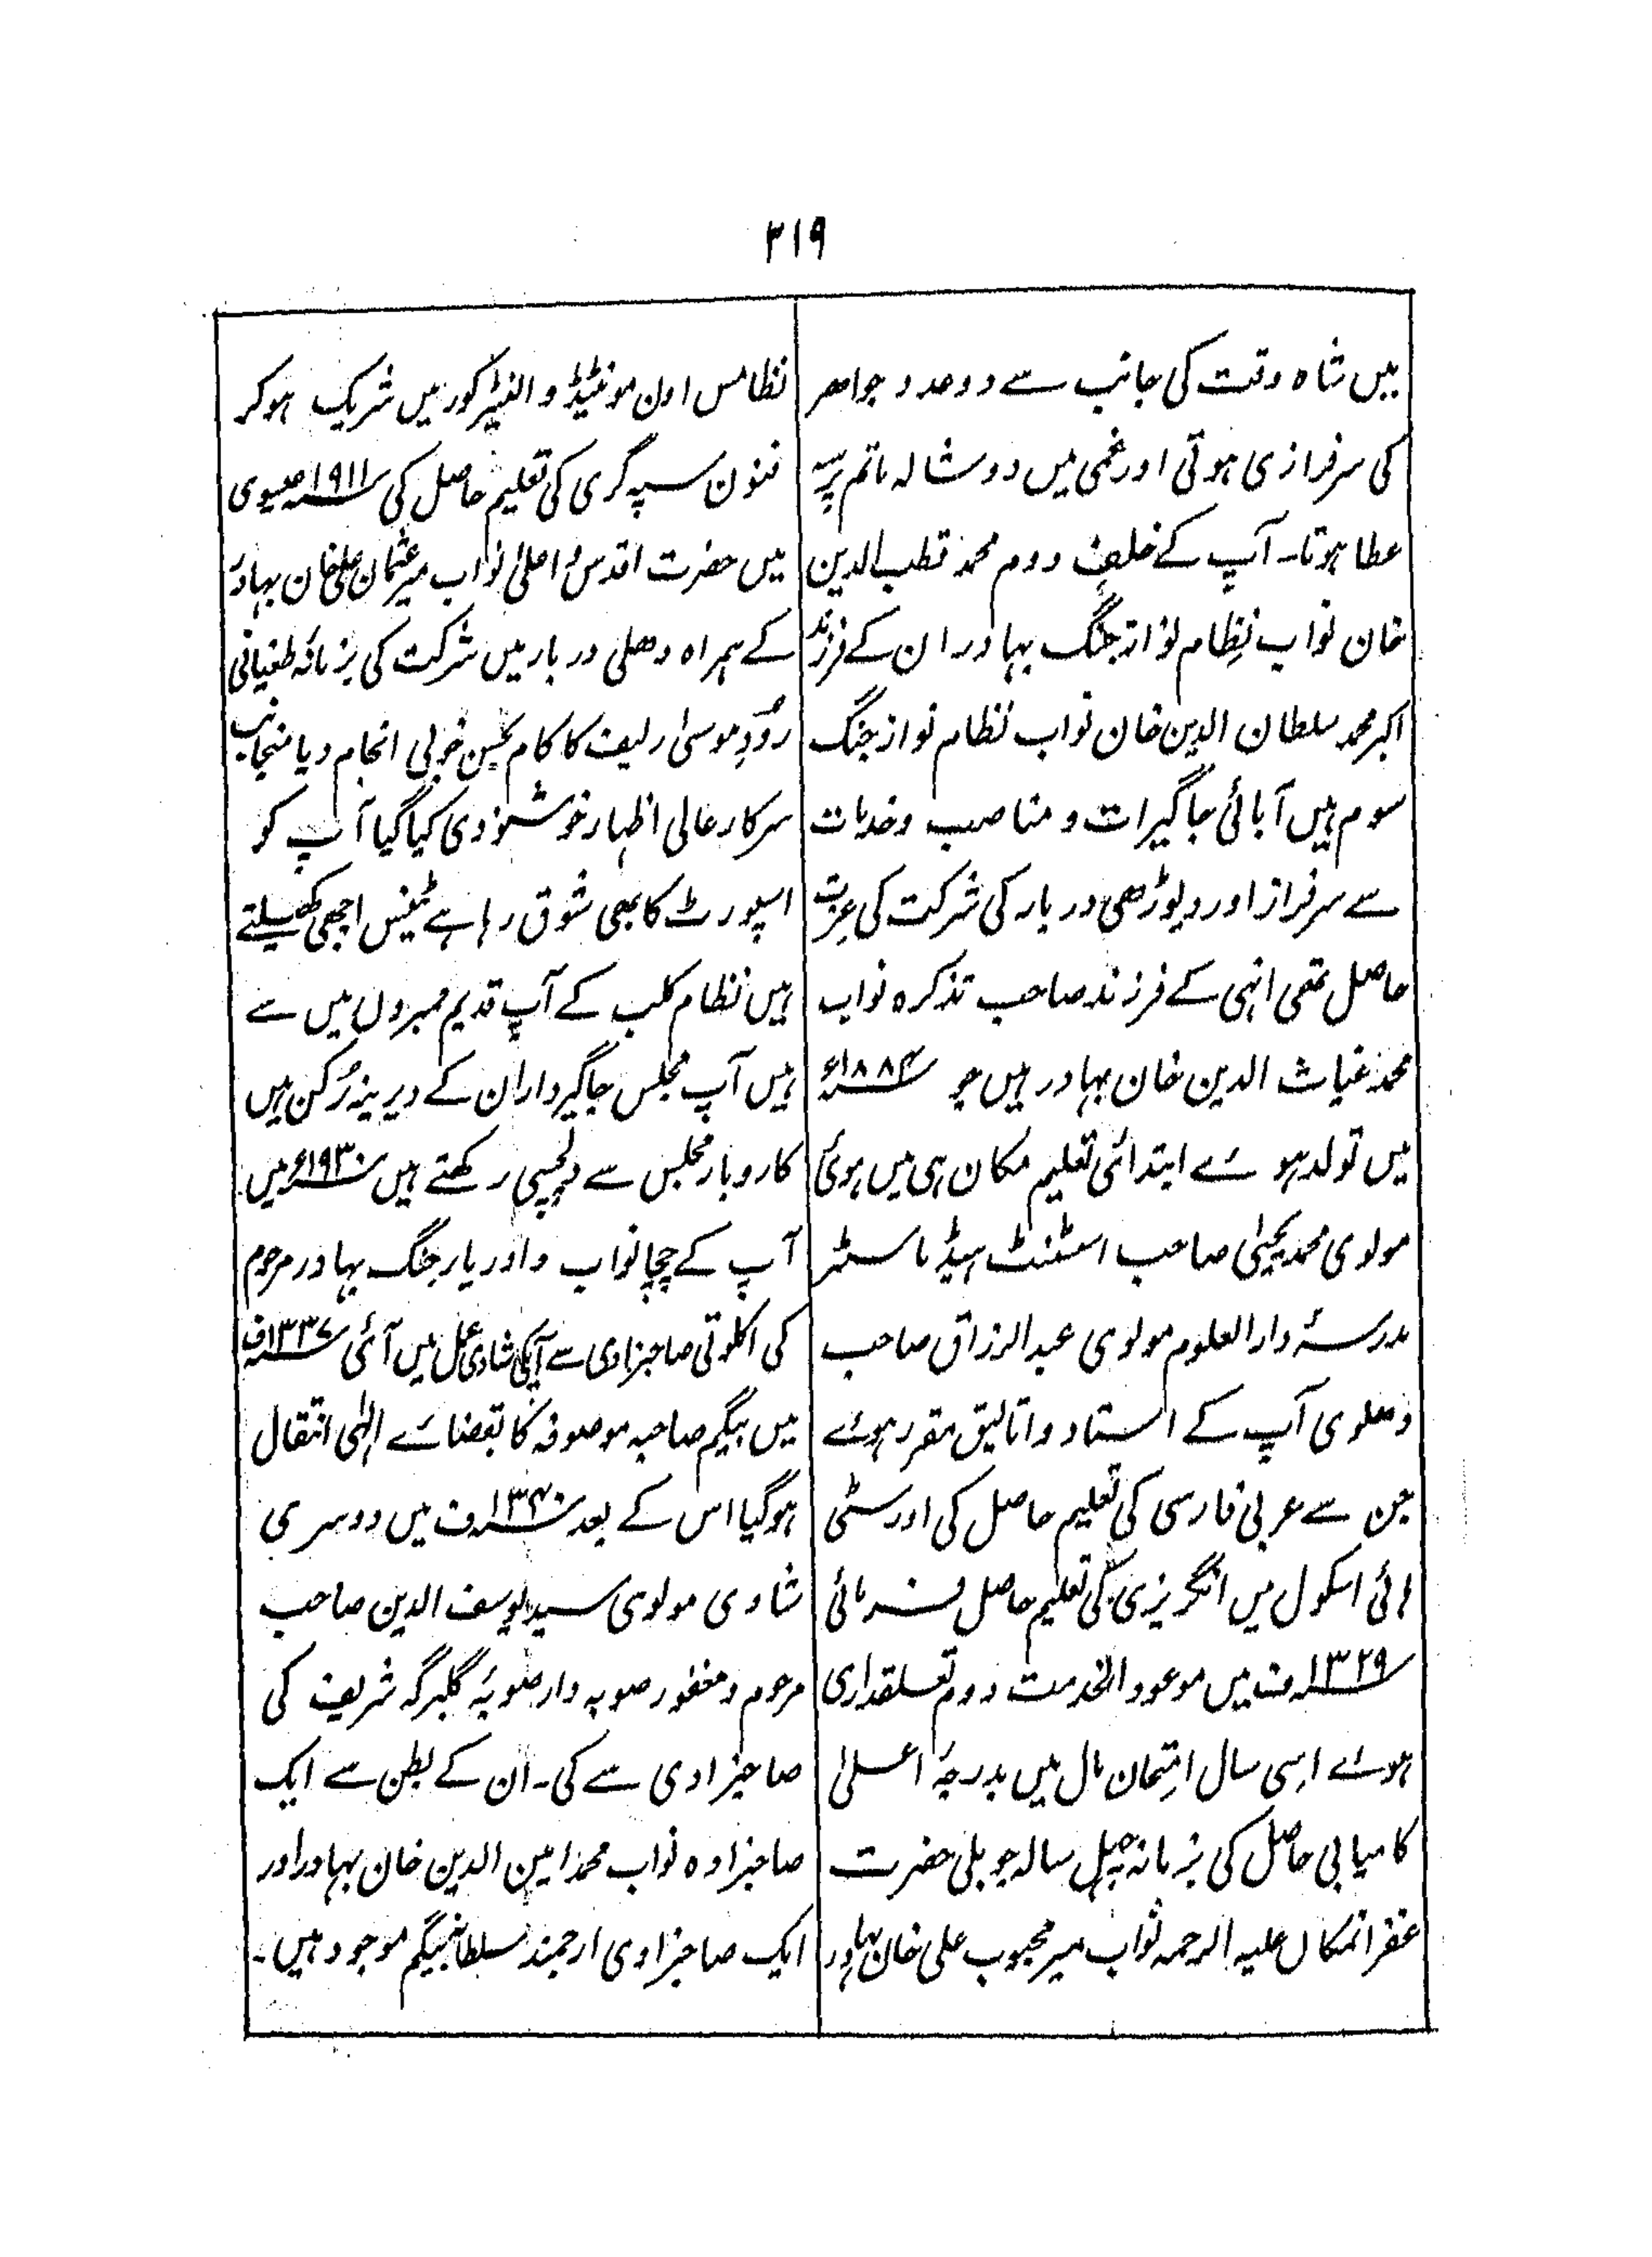 ۳۱۹
میں شاہ وقت کی جانب سے دو عدد جواہر
کی سرفرازی ہوتی اور غمی میں دوشالہ ماتم پرسہ
عطا ہوتا۔ آپ کے خلف دوم محمد قطب الدین
خان نواب نظام نواز جنگ بہادر ان کے فرزند
اکبر محمد سلطان الدین خان نواب نظام نواز جنگ
سوم ہیں آبائی جاگیرات و مناصب و خدمات
سے سرفراز اور دیوڑھی دربار کی شرکت کی عزت
حاصل تھی انہی کے فرزند صاحب تذکرہ نواب
محمد غیاث الدین خان بہادر ہیں جو ۱۸۸۴ء
میں تولد ہوئے ابتدائی تعلیم مکان ہی میں ہوئی
مولوی محمد یحییٰ صاحب اسسٹنٹ ہیڈ ماسٹر
مدرسۂ دارالعلوم مولوی عبدالرزاق صاحب
دہلوی آپ کے استاد و اتالیق مقرر ہوئے
جن سے عربی فارسی کی تعلیم حاصل کی اور سٹی
ہائی اسکول میں انگریزی کی تعلیم حاصل فرمائی
۱۳۲۹ف میں موعود الخدمت دوم تعلقداری
ہوئے اسی سال امتحان مال میں بدرجۂ اعلیٰ
کامیابی حاصل کی بزمانہ چہل سالہ جوبلی حضرت
غفراتمکاں علیہ الرحمہ نواب میر محبوب علی خان بہادر
نظامس اون مونٹیڈ والنٹیر کور میں شریک ہو کر
فنون سپہ گری کی تعلیم حاصل کی ۱۹۱۱ عیسوی
میں حضرت اقدس و اعلیٰ نواب میر عثمان علی خان بہادر
کے ہمراہ دہلی دربار میں شرکت کی بزمانۂ طغیانی
رود موسیٰ رلیف کا کام بحسن خوبی انجام دیا منجانب
سرکار عالی اظہار خوشنودی کیا گیا آپ کو
اسپورٹ کا بھی شوق رہا ہے ٹینس اچھی کھیلتے
ہیں نظام کلب کے آپ قدیم ممبروں میں سے
ہیں آپ مجلس جاگیرداران کے دیرینہ رُکن ہیں
کاروبار مجلس سے دلچسپی رکھتے ہیں ۱۹۳۰ء میں
آپ کے چچا نواب داور یار جنگ بہادر مرحوم
کی اکلوتی صاحبزادی سے آپکی شادی عمل میں آئی ۱۳۳۷ف
میں بیگم صاحبہ موصوفہ کا بقضائے الٰہی انتقال
ہوگیا اس کے بعد ۱۳۴۰ف میں دوسری
شادی مولوی سید یوسف الدین صاحب
مرحوم و مغفور صوبہ دار صوبۂ گلبرگہ شریف کی
صاحبزادی سے کی۔ ان کے بطن سے ایک
صاحبزادہ نواب محمد امین الدین خان بہادر اور
ایک صاحبزادی ارجمند سلطان بیگم موجود ہیں۔